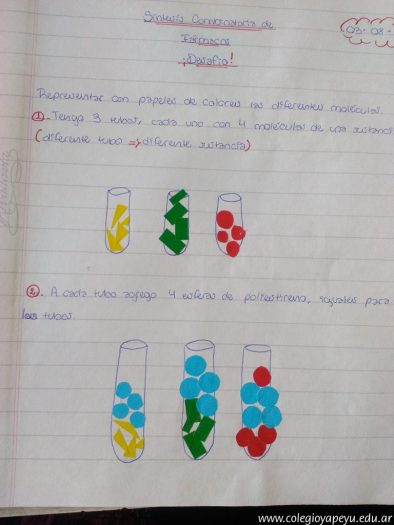 Síntesis Combinatoria de
Fármacos
¡Desafío!
03-08-
Representar con papeles de colores las diferentes moléculas.
①-Tengo 3 tubos, cada uno con 4 moléculas de una sustancia
(diferente tubo => diferente sustancia)
②-A cada tubo agrego 4 esferas de poliestireno, iguales para
los tubos.
www.colegioyapeyu.edu.ar